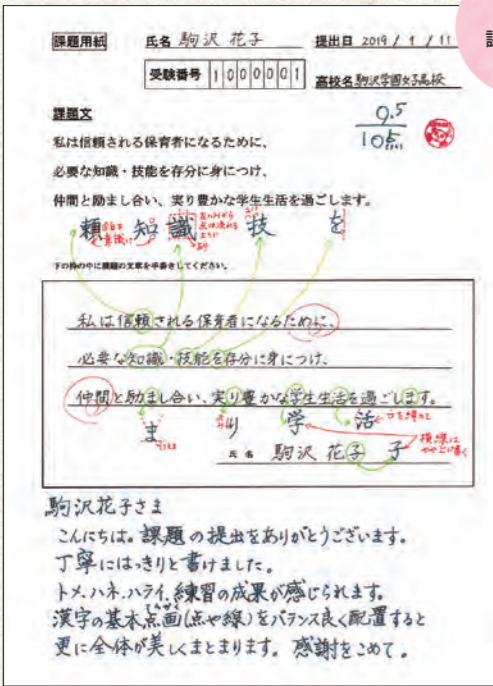 課題用紙 氏名 駒沢 花子 提出日 2019 / 1 / 11
受験番号 1000001 高校名 駒沢学園女子高校
課題文
9.5
私は信頼される保育者になるために、
必要な知識・技能を存分に身につけ、
仲間と励まし合い、実り豊かな学生生活を過ごします。
頼 知 識 技 を
下の枠の中に課題の文章を手書きしてください。
私は信頼される保育者になるために、
必要な知識・技能を存分に身につけ、
仲間と励まし合い、実り豊かな学生生活を過ごします。
ま り 学 活
横線は
やや上に書く
氏名 駒沢 花子 子
駒沢花子さま
こんにちは。課題の提出をありがとうございます。
丁寧にはっきりと書けました。
トメ、ハネ、ハライ、練習の成果が感じられます。
漢字の基本点画(点や線)をバランス良く配置すると
更に全体が美しくまとまります。感謝をこめて。